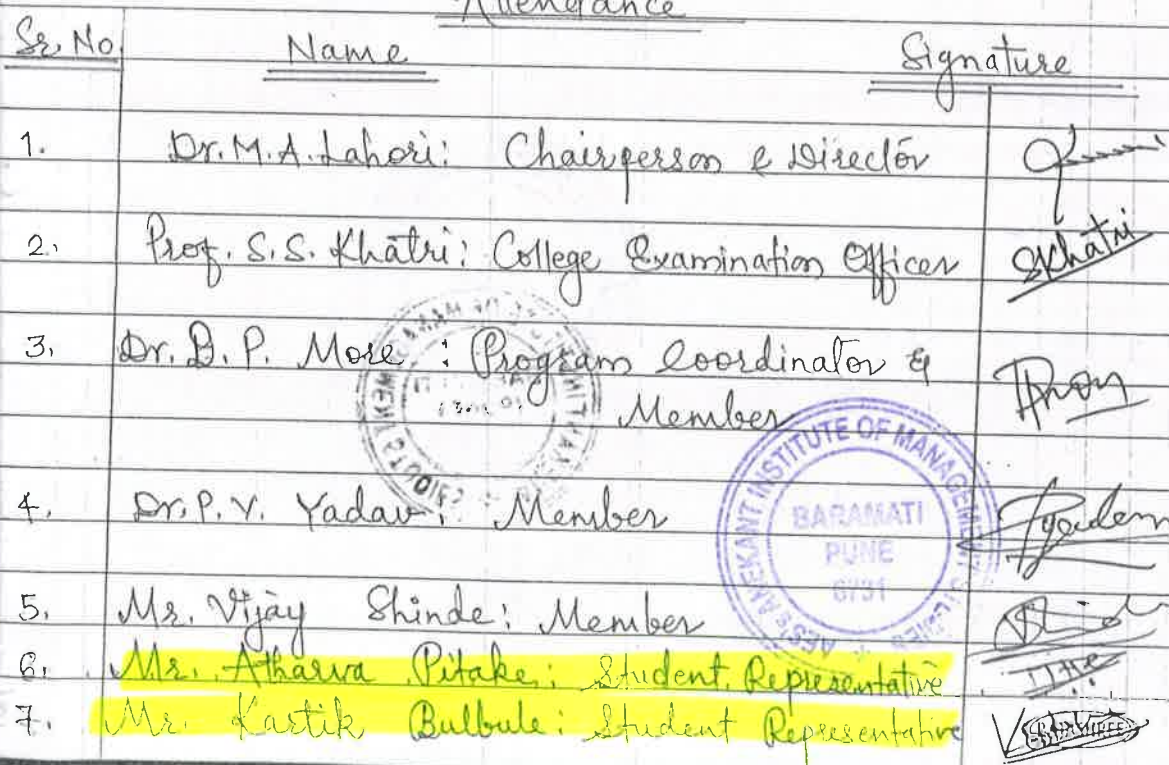 Attendance
Sr. No. Name Signature
1. Dr. M. A. Lahori: Chairperson & Director
2. Prof. S. S. Khatri: College Examination Officer SKhatri
3. Dr. B. P. More : Program Coordinator &
Member
4. Dr. P. V. Yadav: Member
5. Mr. Vijay Shinde: Member
6. Mr. Atharva Pitake: Student Representative
7. Mr. Kartik Bulbule: Student Representative
AES'S ANEKANT INSTITUTE OF MANAGEMENT STUDIES
BARAMATI
PUNE